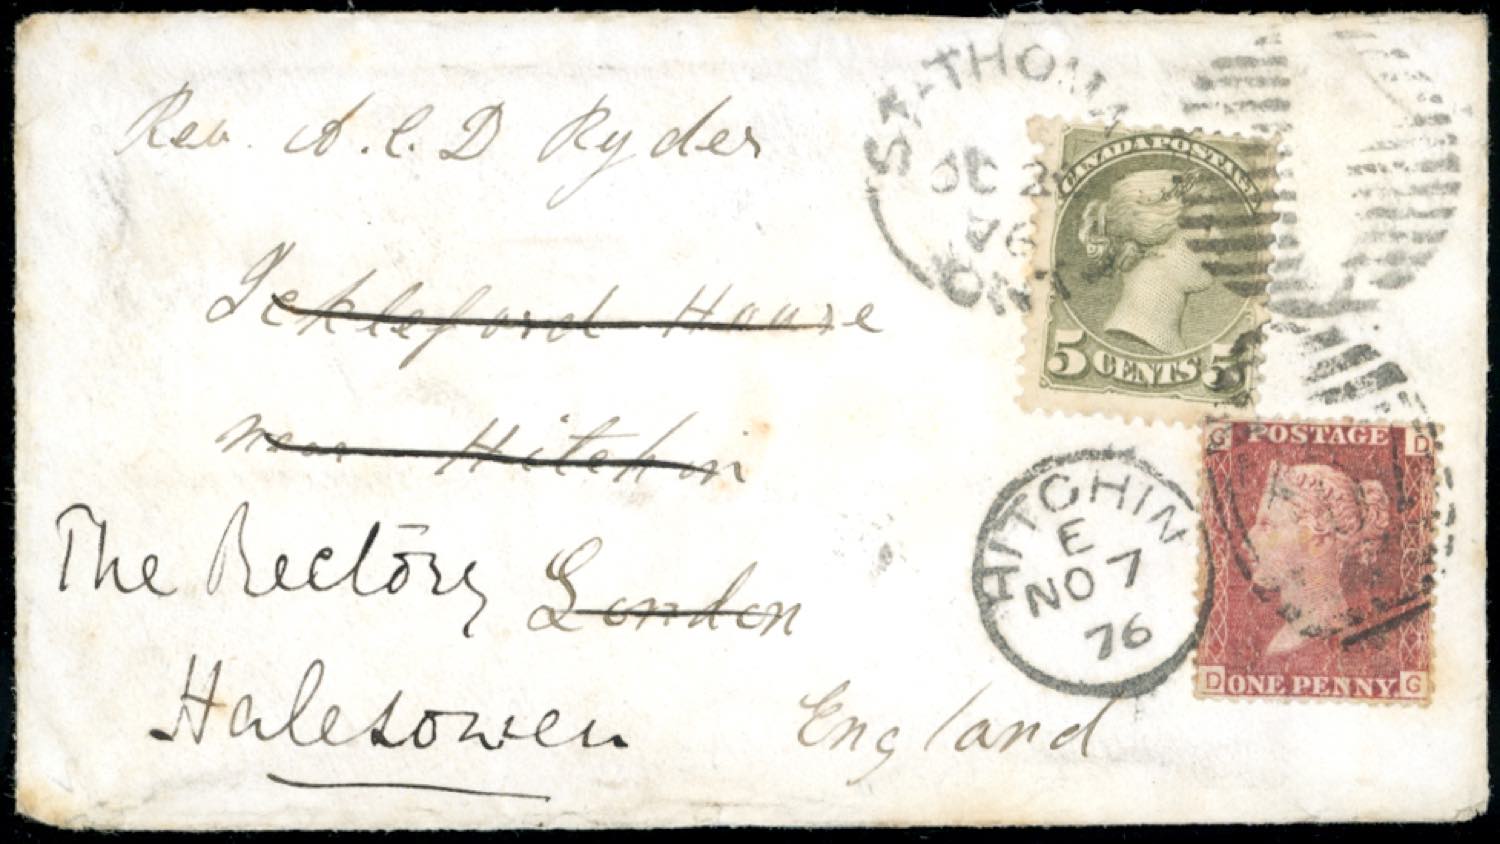 Rev. A. C. D Ryder
Ickleford House
near Hitchin
The Rectory London
Halesowen
England
OC 2
76
ONT
CANADA POSTAGE
5 CENTS 5
HITCHIN
E
NO 7
76
G POSTAGE D
D ONE PENNY G